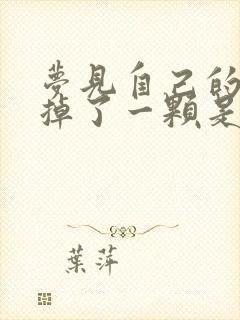 夢見自己的
掉了一顆是
葉萍